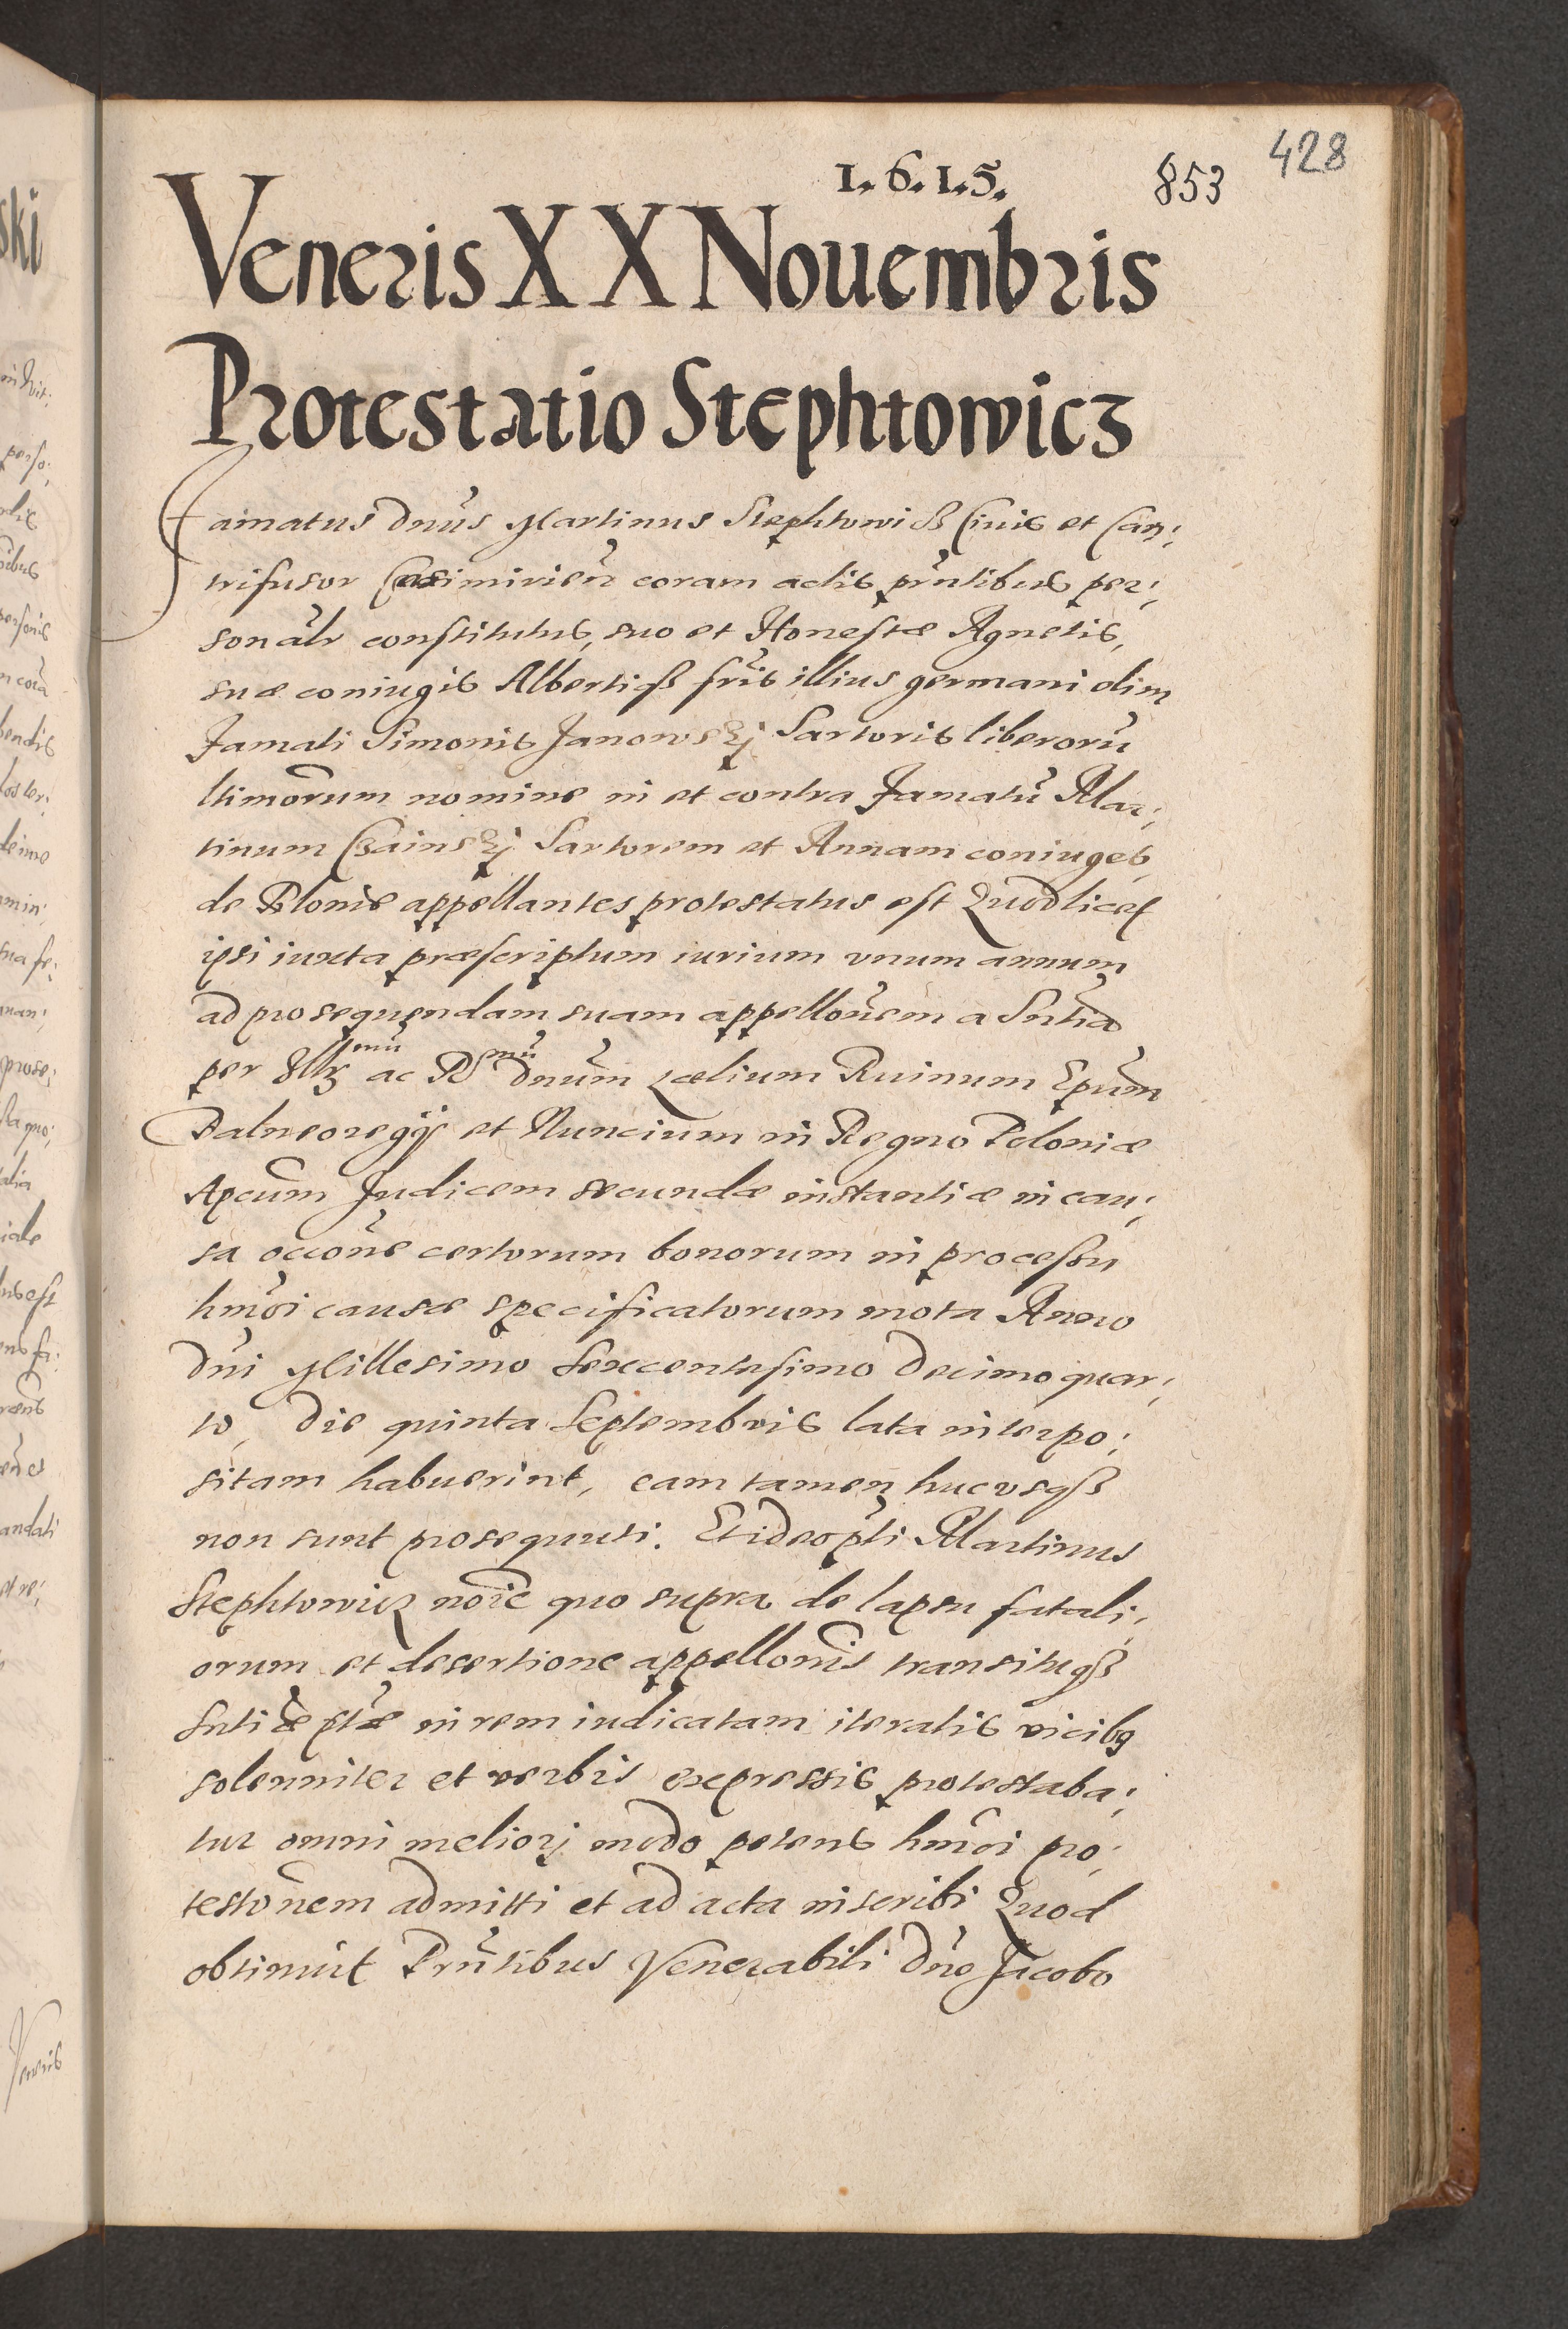 428
1.6.1.5. 853
Veneris XX Nouembris
Protestatio Stephtowicz
Famatus Dnus Martinus Stephtowicz Ciuis et Can¦
trifusor Casimirien coram actis pntibus per¦
sonalr constitutus, suo et Honestæ Agnetis,
suæ coniugis Albertiqß fris illius germani olim
Famati Simonis Janowskj Sartoris liberorũ
ltimorum nomine in et contra Famatũ Mar¦
tinum Czainskj Sartorem et Annam coniuges
de Plonie appellantes protestatus est Quod licet
ipsi iuxta præscriptum iurium vnum annum
ad prosequendam suam appellonem a Sntia
per Illmũ ac Rmũ Dnum Lælium Ruinum Epum
Balneoregij et Nuncium in Regno Poloniæ
Apcum Judicem secundæ instantiæ in cau¦
sa occone certorum bonorum in processu
hmoi causæ specificatorum mota Anno
Dni Millesimo Sexcentesimo Decimo quar¦
to, Die quinta Septembris lata interpo¦
sitam habuerint, eam tamen hucvsqß
non sunt prosequuti. Et ideo pti Martinus
Stephtowicz noie quo supra de lapsu fatali¦
orum et desertione appellonis transituqß
Sntiæ ptæ in rem iudicatam iteratis vicibq
solenniter et verbis expressis protestaba¦
tur omni meliorj modo petens hmoi pro¦
testonem admitti et ad acta inscribi Quod
obtinuit Prntibus Venerabili Dno Jacobo